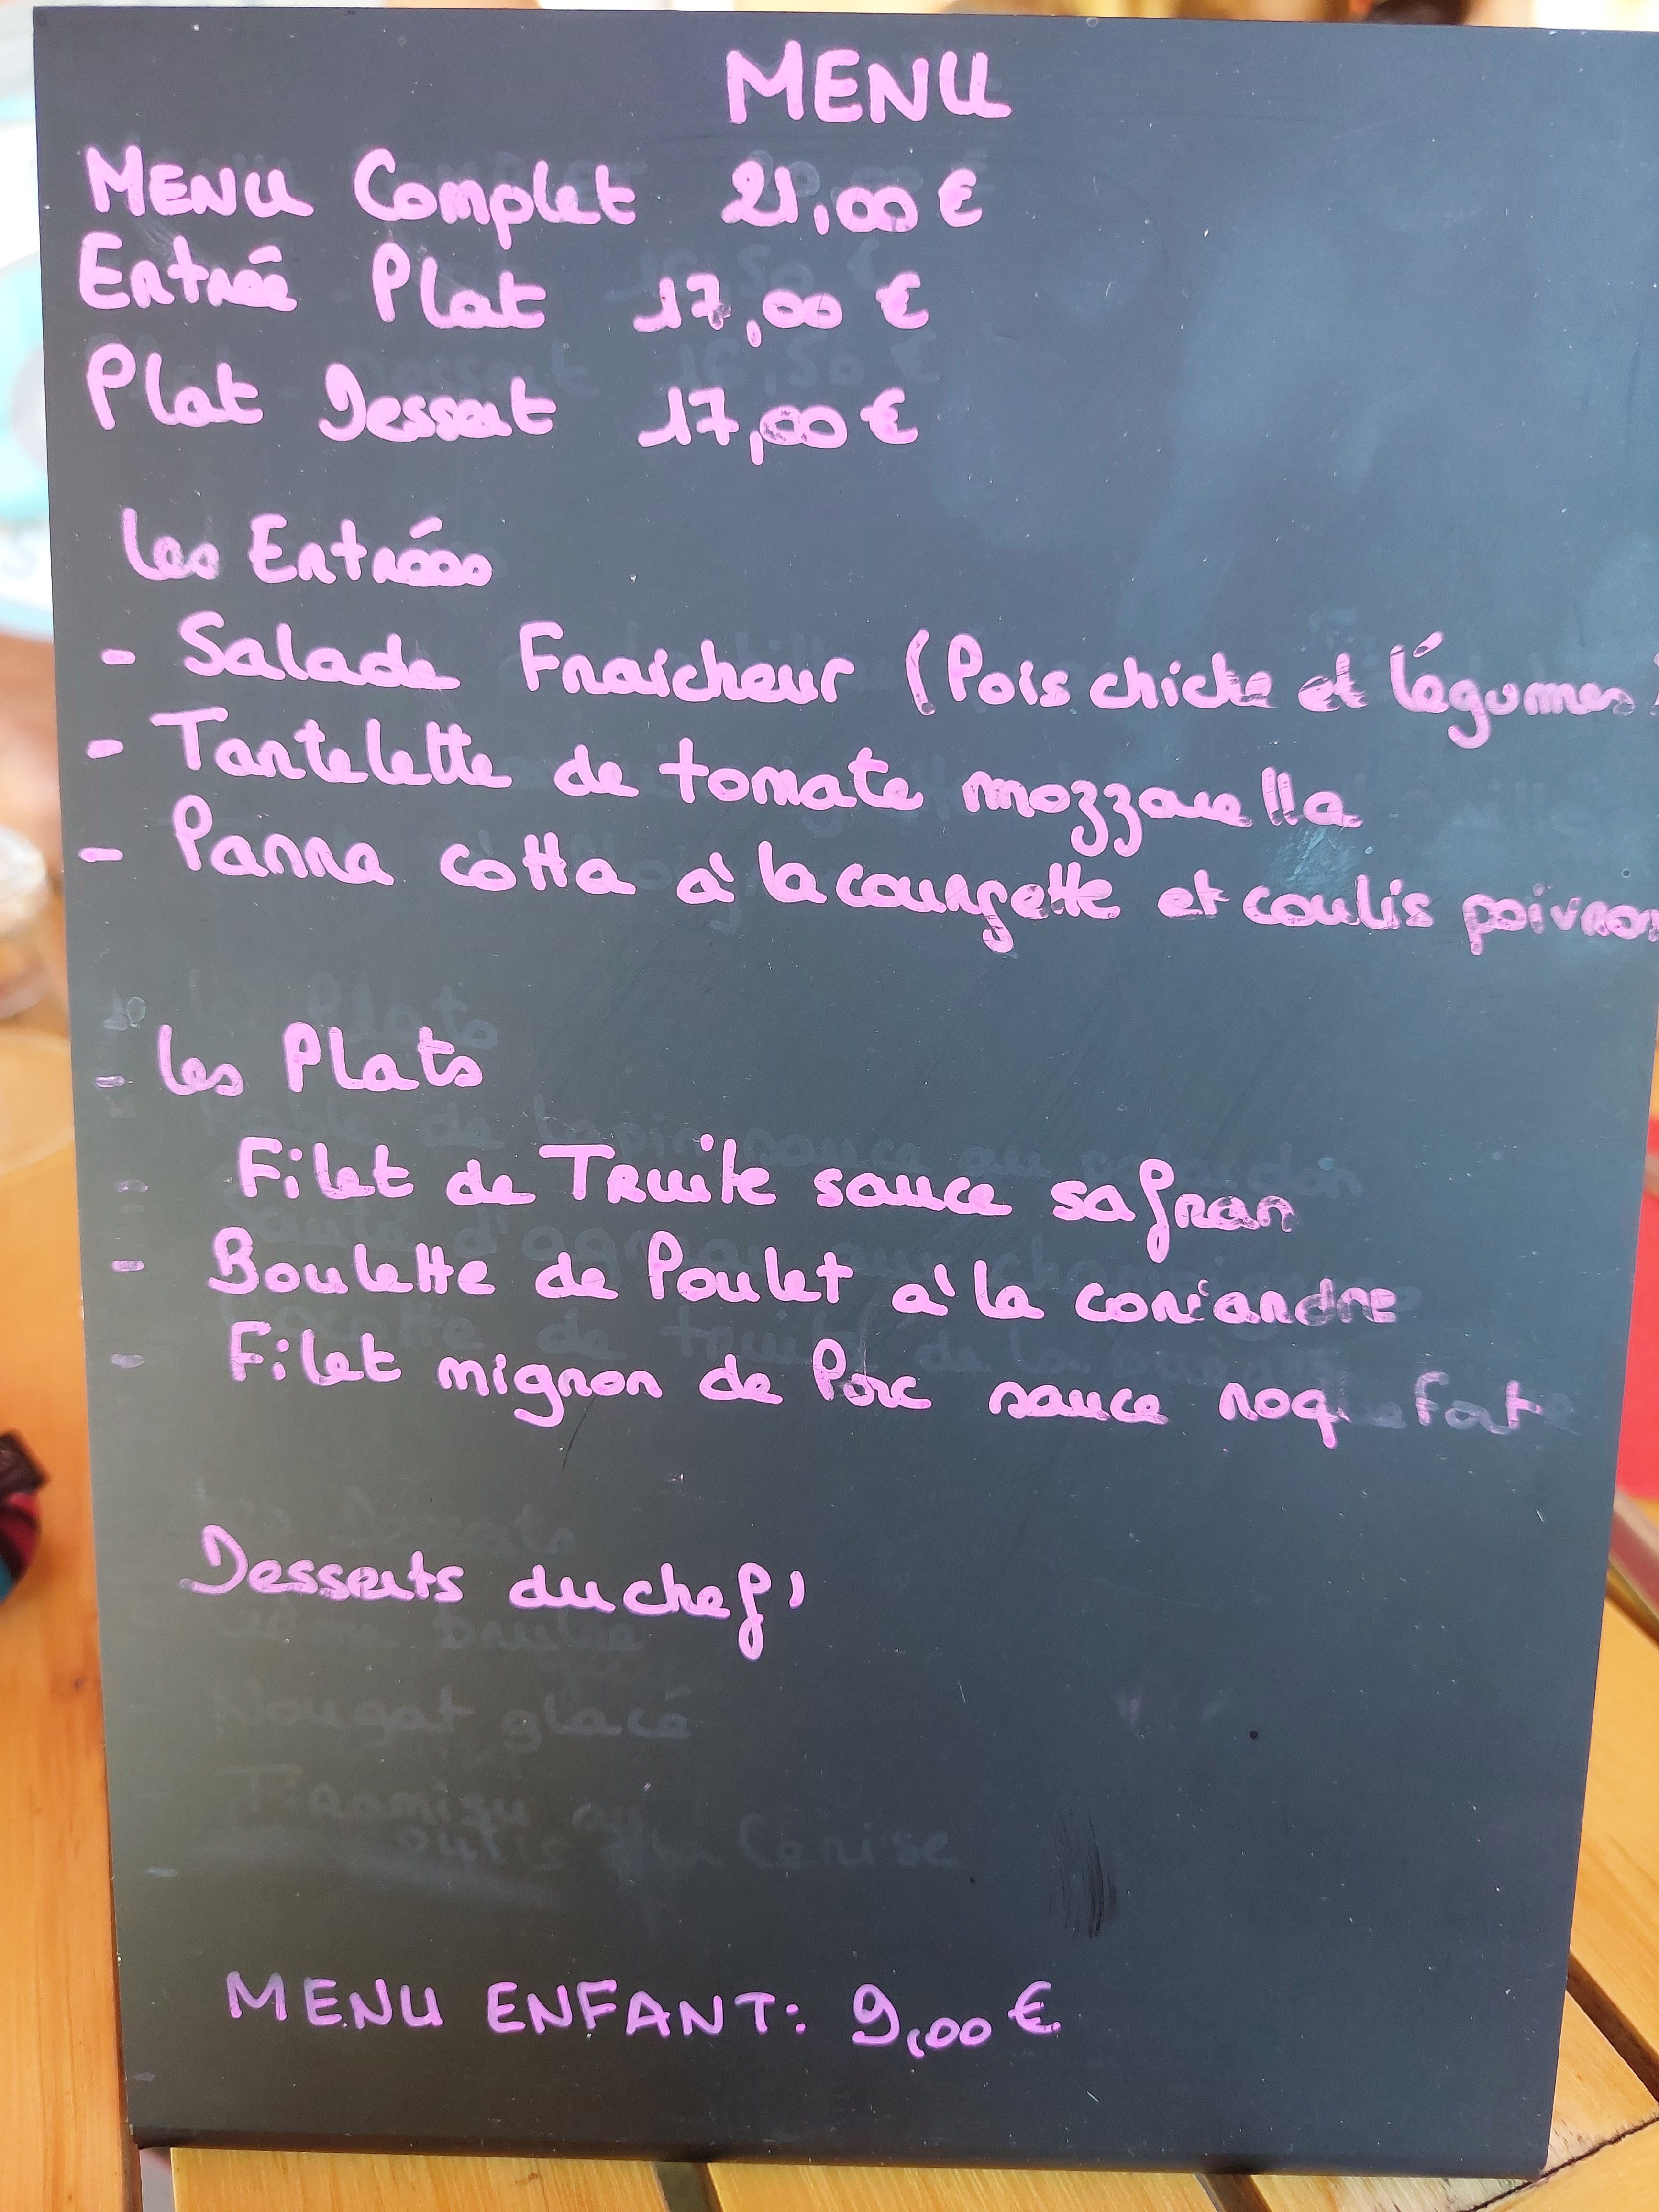 MENU
MENU Complet 21,00 €
Entrée Plat 17,00 €
Plat Dessert 17,00 €
Les Entrées
- Salade Fraîcheur (Pois chiche et légumes)
- Tartelette de tomate mozzarella
- Panna cotta à la courgette et coulis poivron
- Les Plats
- Filet de Truite sauce safran
- Boulette de Poulet à la coriandre
- Filet mignon de Porc sauce roquefort
Desserts du chef,
Nougat glacé
Tiramisu
Cerise
MENU ENFANT: 9,00 €